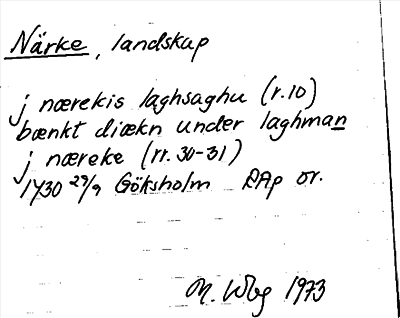 Närke, landskap
j nærekis laghsaghu (r.10)
bænkt diækn under laghman
j næreke (rr. 30-31)
1430 29/9 Göksholm RAp or.
M. Wbg 1973